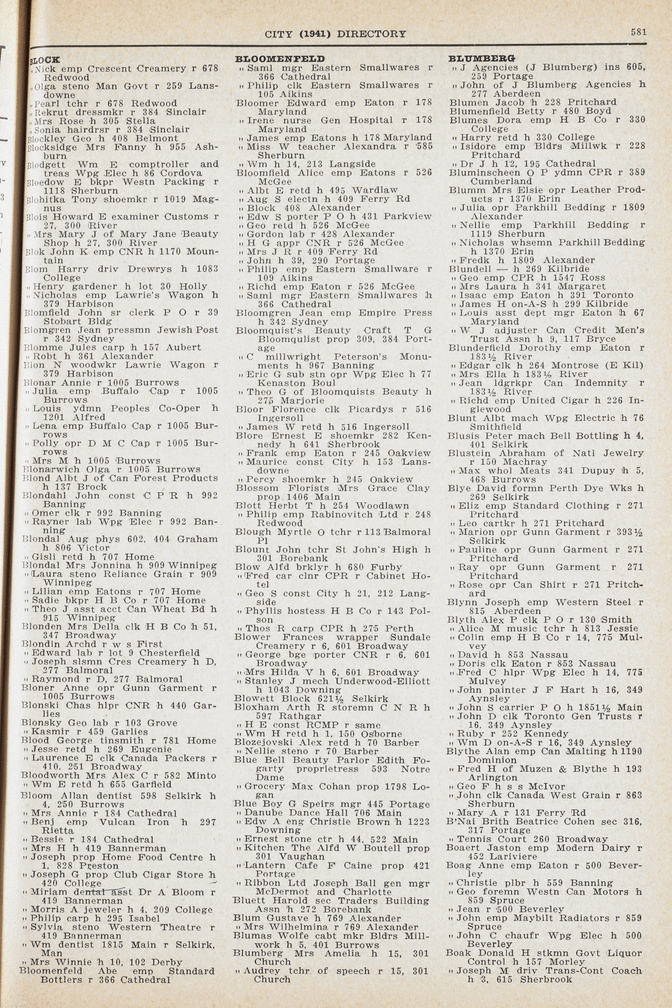 CITY (1941) DIRECTORY
581
BLOCK
" Nick emp Crescent Creamery r 678
Redwood
" Olga steno Man Govt r 259 Lans-
downe
" Pearl tchr r 678 Redwood
" Rekrut dressmkr r 384 Sinclair
" Mrs Rose h 305 Stella
" Sonia hairdrsr r 384 Sinclair
Blockley Geo h 408 Belmont
Blocksidge Mrs Fanny h 955 Ash-
burn
Blodgett Wm E comptroller and
treas Wpg Elec h 86 Cordova
Bloedow E bkpr Westn Packing r
1118 Sherburn
Blohitka Tony shoemkr r 1019 Mag-
nus
Blois Howard E examiner Customs r
27, 300 River
" Mrs Mary J of Mary Jane Beauty
Shop h 27, 300 River
Blok John K emp CNR h 1170 Moun-
tain
Blom Harry driv Drewrys h 1083
College
" Henry gardener h lot 30 Holly
" Nicholas emp Lawrie's Wagon h
379 Harbison
Blomfield John sr clerk P O r 39
Stobart Bldg
Blomgren Jean pressmn Jewish Post
r 342 Sydney
Blomme Jules carp h 157 Aubert
" Robt h 361 Alexander
Blon N woodwkr Lawrie Wagon r
379 Harbison
Blonar Annie r 1005 Burrows
" Julia emp Buffalo Cap r 1005
Burrows
" Louis ydmn Peoples Co-Oper h
1201 Alfred
" Lena emp Buffalo Cap r 1005 Bur-
rows
" Polly opr D M C Cap r 1005 Bur-
rows
" Mrs M h 1005 Burrows
Blonarwich Olga r 1005 Burrows
Blond Albt J of Can Forest Products
h 137 Brock
Blondahl John const C P R h 992
Banning
" Omer clk r 992 Banning
" Rayner lab Wpg Elec r 992 Ban-
ning
Blondal Aug phys 602, 404 Graham
h 806 Victor
" Gisli retd h 707 Home
Blondal Mrs Jonnina h 909 Winnipeg
" Laura steno Reliance Grain r 909
Winnipeg
" Lilian emp Eatons r 707 Home
" Sadie bkpr H B Co r 707 Home
" Theo J asst acct Can Wheat Bd h
915 Winnipeg
Blonden Mrs Della clk H B Co h 51,
347 Broadway
Blondin Archd r w s First
" Edward lab r lot 9 Chesterfield
" Joseph slsmn Cres Creamery h D,
277 Balmoral
" Raymond r D, 277 Balmoral
Bloner Anne opr Gunn Garment r
1005 Burrows
Blonski Chas hlpr CNR h 440 Gar-
lies
Blonsky Geo lab r 103 Grove
" Kasmir r 459 Garlies
Blood George tinsmith r 781 Home
" Jesse retd h 269 Eugenie
" Laurence E clk Canada Packers r
410, 251 Broadway
Bloodworth Mrs Alex C r 582 Minto
" Wm E retd h 655 Garfield
Bloom Allan dentist 598 Selkirk h
4, 250 Burrows
" Mrs Annie r 184 Cathedral
" Benj emp Vulcan Iron h 297
Rietta
" Bessie r 184 Cathedral
" Mrs H h 419 Bannerman
" Joseph prop Home Food Centre h
1, 828 Preston
" Joseph G prop Club Cigar Store h
420 College
" Miriam dental asst Dr A Bloom r
419 Bannerman
" Morris A jeweler h 4, 209 College
" Philip carp h 295 Isabel
" Sylvia steno Western Theatre r
419 Bannerman
" Wm dentist 1815 Main r Selkirk,
Man
" Mrs Winnie h 10, 102 Derby
Bloomenfeld Abe emp Standard
Bottlers r 366 Cathedral
BLOOMENFELD
" Saml mgr Eastern Smallwares r
366 Cathedral
" Philip clk Eastern Smallwares r
105 Aikins
Bloomer Edward emp Eaton r 178
Maryland
" Irene nurse Gen Hospital r 178
Maryland
" James emp Eatons h 178 Maryland
" Miss W teacher Alexandra r 585
Sherburn
" Wm h 14, 213 Langside
Bloomfield Alice emp Eatons r 526
McGee
" Albt E retd h 495 Wardlaw
" Aug S electn h 409 Ferry Rd
" Block 408 Alexander
" Edw S porter P O h 431 Parkview
" Geo retd h 526 McGee
" Gordon lab r 428 Alexander
" H G appr CNR r 526 McGee
" Mrs J R r 409 Ferry Rd
" John h 39, 290 Portage
" Philip emp Eastern Smallware r
109 Aikins
" Richd emp Eaton r 526 McGee
" Saml mgr Eastern Smallwares h
366 Cathedral
Bloomgren Jean emp Empire Press
h 342 Sydney
Bloomquist's Beauty Craft T G
Bloomqulist prop 309, 384 Port-
age
" C millwright Peterson's Monu-
ments h 967 Banning
" Eric G sub stn opr Wpg Elec h 77
Kenaston Boul
" Theo G of Bloomquists Beauty h
275 Marjorie
Bloor Florence clk Picardys r 516
Ingersoll
" James W retd h 516 Ingersoll
Blore Ernest E shoemkr 282 Ken-
nedy h 641 Sherbrook
" Frank emp Eaton r 245 Oakview
" Maurice const City h 153 Lans-
downe
" Percy shoemkr h 245 Oakview
Blossom Florists Mrs Grace Clay
prop 1406 Main
Blott Herbt T h 254 Woodlawn
" Philip emp Rabinovitch Ltd r 248
Redwood
Blough Myrtle O tchr r 113 Balmoral
Pl
Blount John tchr St John's High h
301 Borebank
Blow Alfd brklyr h 680 Furby
" Fred car clnr CPR r Cabinet Ho-
tel
" Geo S const City h 21, 212 Lang-
side
" Phyllis hostess H B Co r 143 Pol-
son
" Thos R carp CPR h 275 Perth
Blower Frances wrapper Sundale
Creamery r 6, 601 Broadway
" George bge porter CNR r 6, 601
Broadway
" Mrs Hilda V h 6, 601 Broadway
" Stanley J mech Underwood-Elliott
h 1043 Downing
Blowett Block 621½ Selkirk
Bloxham Arth R storemn C N R h
597 Rathgar
" H E const RCMP r same
" Wm H retd h 1, 150 Osborne
Blozejovski Alex retd h 70 Barber
" Nellie steno r 70 Barber
Blue Bell Beauty Parlor Edith Fo-
garty proprietress 593 Notre
Dame
" Grocery Max Cohan prop 1798 Lo-
gan
Blue Boy G Speirs mgr 445 Portage
" Danube Dance Hall 706 Main
" Edw A eng Christie Brown h 1223
Downing
" Ernest stone ctr h 44, 522 Main
" Kitchen The Alfd W Boutell prop
301 Vaughan
" Lantern Cafe F Caine prop 421
Portage
" Ribbon Ltd Joseph Ball gen mgr
McDermot and Charlotte
Bluett Harold sec Traders Building
Assn h 272 Borebank
Blum Gustave h 769 Alexander
" Mrs Wilhelmina r 769 Alexander
Blumas Wolfe cabt mkr Bldrs Mill-
work h 5, 401 Burrows
Blumberg Mrs Amelia h 15, 301
Church
" Audrey tchr of speech r 15, 301
Church
BLUMBERG
" J Agencies (J Blumberg) ins 605,
259 Portage
" John of J Blumberg Agencies h
277 Aberdeen
Blumen Jacob h 228 Pritchard
Blumenfield Betty r 480 Boyd
Blumes Dora emp H B Co r 330
College
" Harry retd h 330 College
" Isidore emp Bldrs Millwk r 228
Pritchard
" Dr J h 12, 195 Cathedral
Bluminscheen O P ydmn CPR r 389
Cumberland
Blumm Mrs Elsie opr Leather Prod-
ucts r 1370 Erin
" Julia opr Parkhill Bedding r 1809
Alexander
" Nellie emp Parkhill Bedding r
1119 Sherburn
" Nicholas whsemn Parkhill Bedding
h 1370 Erin
" Fredk h 1809 Alexander
Blundell — h 269 Kilbride
" Geo emp CPR h 1547 Ross
" Mrs Laura h 341 Margaret
" Isaac emp Eaton h 391 Toronto
" James H on-A-S h 299 Kilbride
" Louis asst dept mgr Eaton h 67
Maryland
" W J adjuster Can Credit Men's
Trust Assn h 9, 117 Bryce
Blunderfield Dorothy emp Eaton r
183½ River
" Edgar clk h 264 Montrose (E Kil)
" Mrs Ella h 183½ River
" Jean ldgrkpr Can Indemnity r
183½ River
" Richd emp United Cigar h 226 In-
glewood
Blunt Albt mach Wpg Electric h 76
Smithfield
Blusis Peter mach Bell Bottling h 4,
401 Selkirk
Blustein Abraham of Natl Jewelry
r 150 Machray
" Max whol Meats 341 Dupuy h 5,
468 Burrows
Blye David formn Perth Dye Wks h
269 Selkirk
" Eliz emp Standard Clothing r 271
Pritchard
" Leo cartkr h 271 Pritchard
" Marion opr Gunn Garment r 393½
Selkirk
" Pauline opr Gunn Garment r 271
Pritchard
" Ray opr Gunn Garment r 271
Pritchard
" Rose opr Can Shirt r 271 Pritch-
ard
Blynn Joseph emp Western Steel r
815 Aberdeen
Blyth Alex P clk P O r 130 Smith
" Alice M music tchr h 813 Jessie
" Colin emp H B Co r 14, 775 Mul-
vey
" David h 853 Nassau
" Doris clk Eaton r 853 Nassau
" Fred C hlpr Wpg Elec h 14, 775
Mulvey
" John painter J F Hart h 16, 349
Aynsley
" John S carrier P O h 1851½ Main
" John D clk Toronto Gen Trusts r
16, 349 Aynsley
" Ruby r 252 Kennedy
" Wm D on-A-S r 16, 349 Aynsley
Blythe Alan emp Can Malting h 1190
Dominion
" Fred H of Muzen & Blythe h 193
Arlington
" Geo F h s s McIvor
" John clk Canada West Grain r 863
Sherburn
" Mary A r 131 Ferry Rd
B'Nai Brith Beatrice Cohen sec 316,
317 Portage
" Tennis Court 260 Broadway
Boaert Jaston emp Modern Dairy r
452 Lariviere
Boag Anne emp Eaton r 500 Bever-
ley
" Christie plbr h 559 Banning
" Geo foremn Westn Can Motors h
859 Spruce
" Jean r 500 Beverley
" John emp Maybilt Radiators r 859
Spruce
" John C chaufr Wpg Elec h 500
Beverley
Boak Donald H stkmn Govt Liquor
Control h 157 Morley
" Joseph M driv Trans-Cont Coach
h 3, 615 Sherbrook